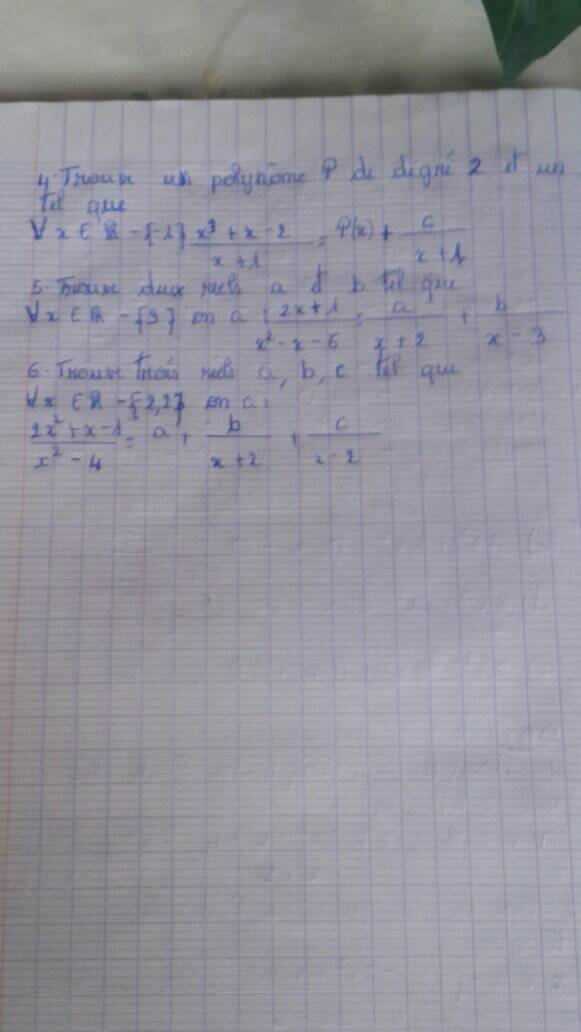 4. Trouver un polynôme P de degré 2 et un
tel que
∀ x ∈ ℝ - {-1} (x³ + x - 2)/(x + 1) = P(x) + c/(x + 1)
5. Trouver deux réels a et b tel que
∀ x ∈ ℝ - {3} on a : (2x + 1)/(x² - x - 6) = a/(x + 2) + b/(x - 3)
6. Trouver trois réels a, b, c tel que
∀ x ∈ ℝ - {2,2} on a :
(2x² + x - 1)/(x² - 4) = a + b/(x + 2) + c/(x - 2)